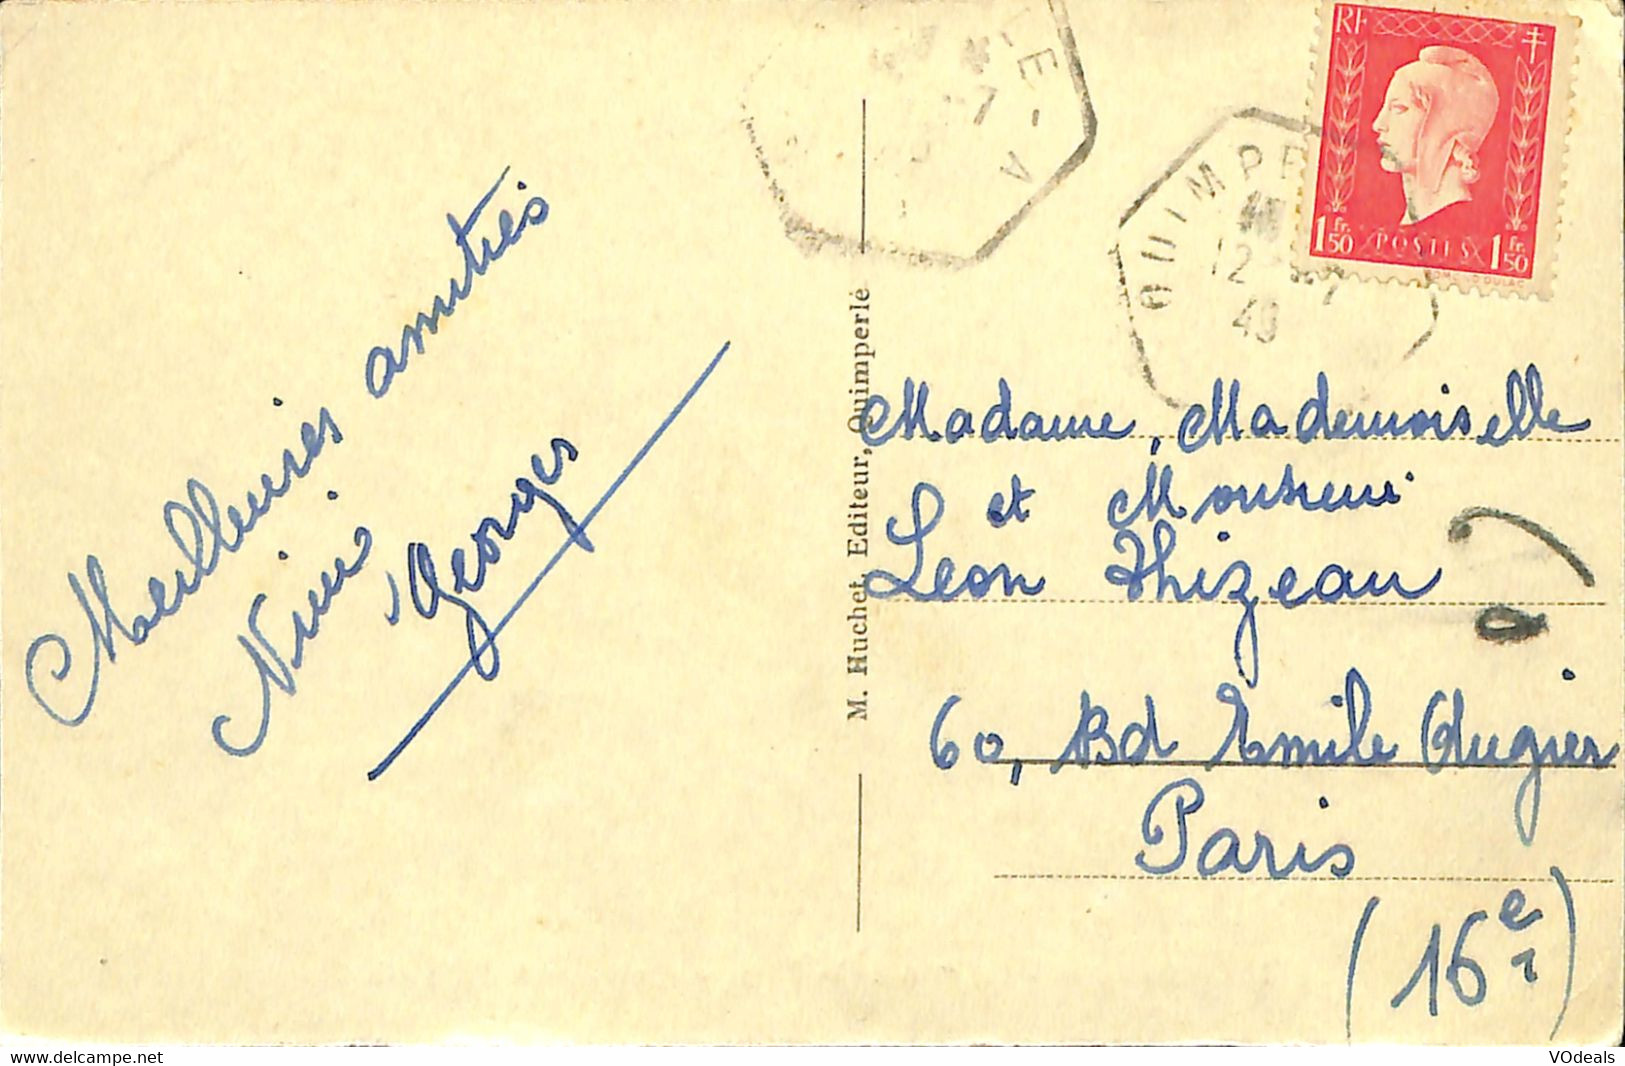 Meilleures amitiés
Nini
Georges
M. Huchet, Editeur, Quimperlé
LE - A
-7
QUIMPE
12 -7
RF
1 Fr. 50 POSTES 1 Fr. 50
Madame, Mademoiselle
et Monsieur
Léon Thizeau
60, Bd Emile Augier
Paris
(16e)
VOdeals
www.delcampe.net